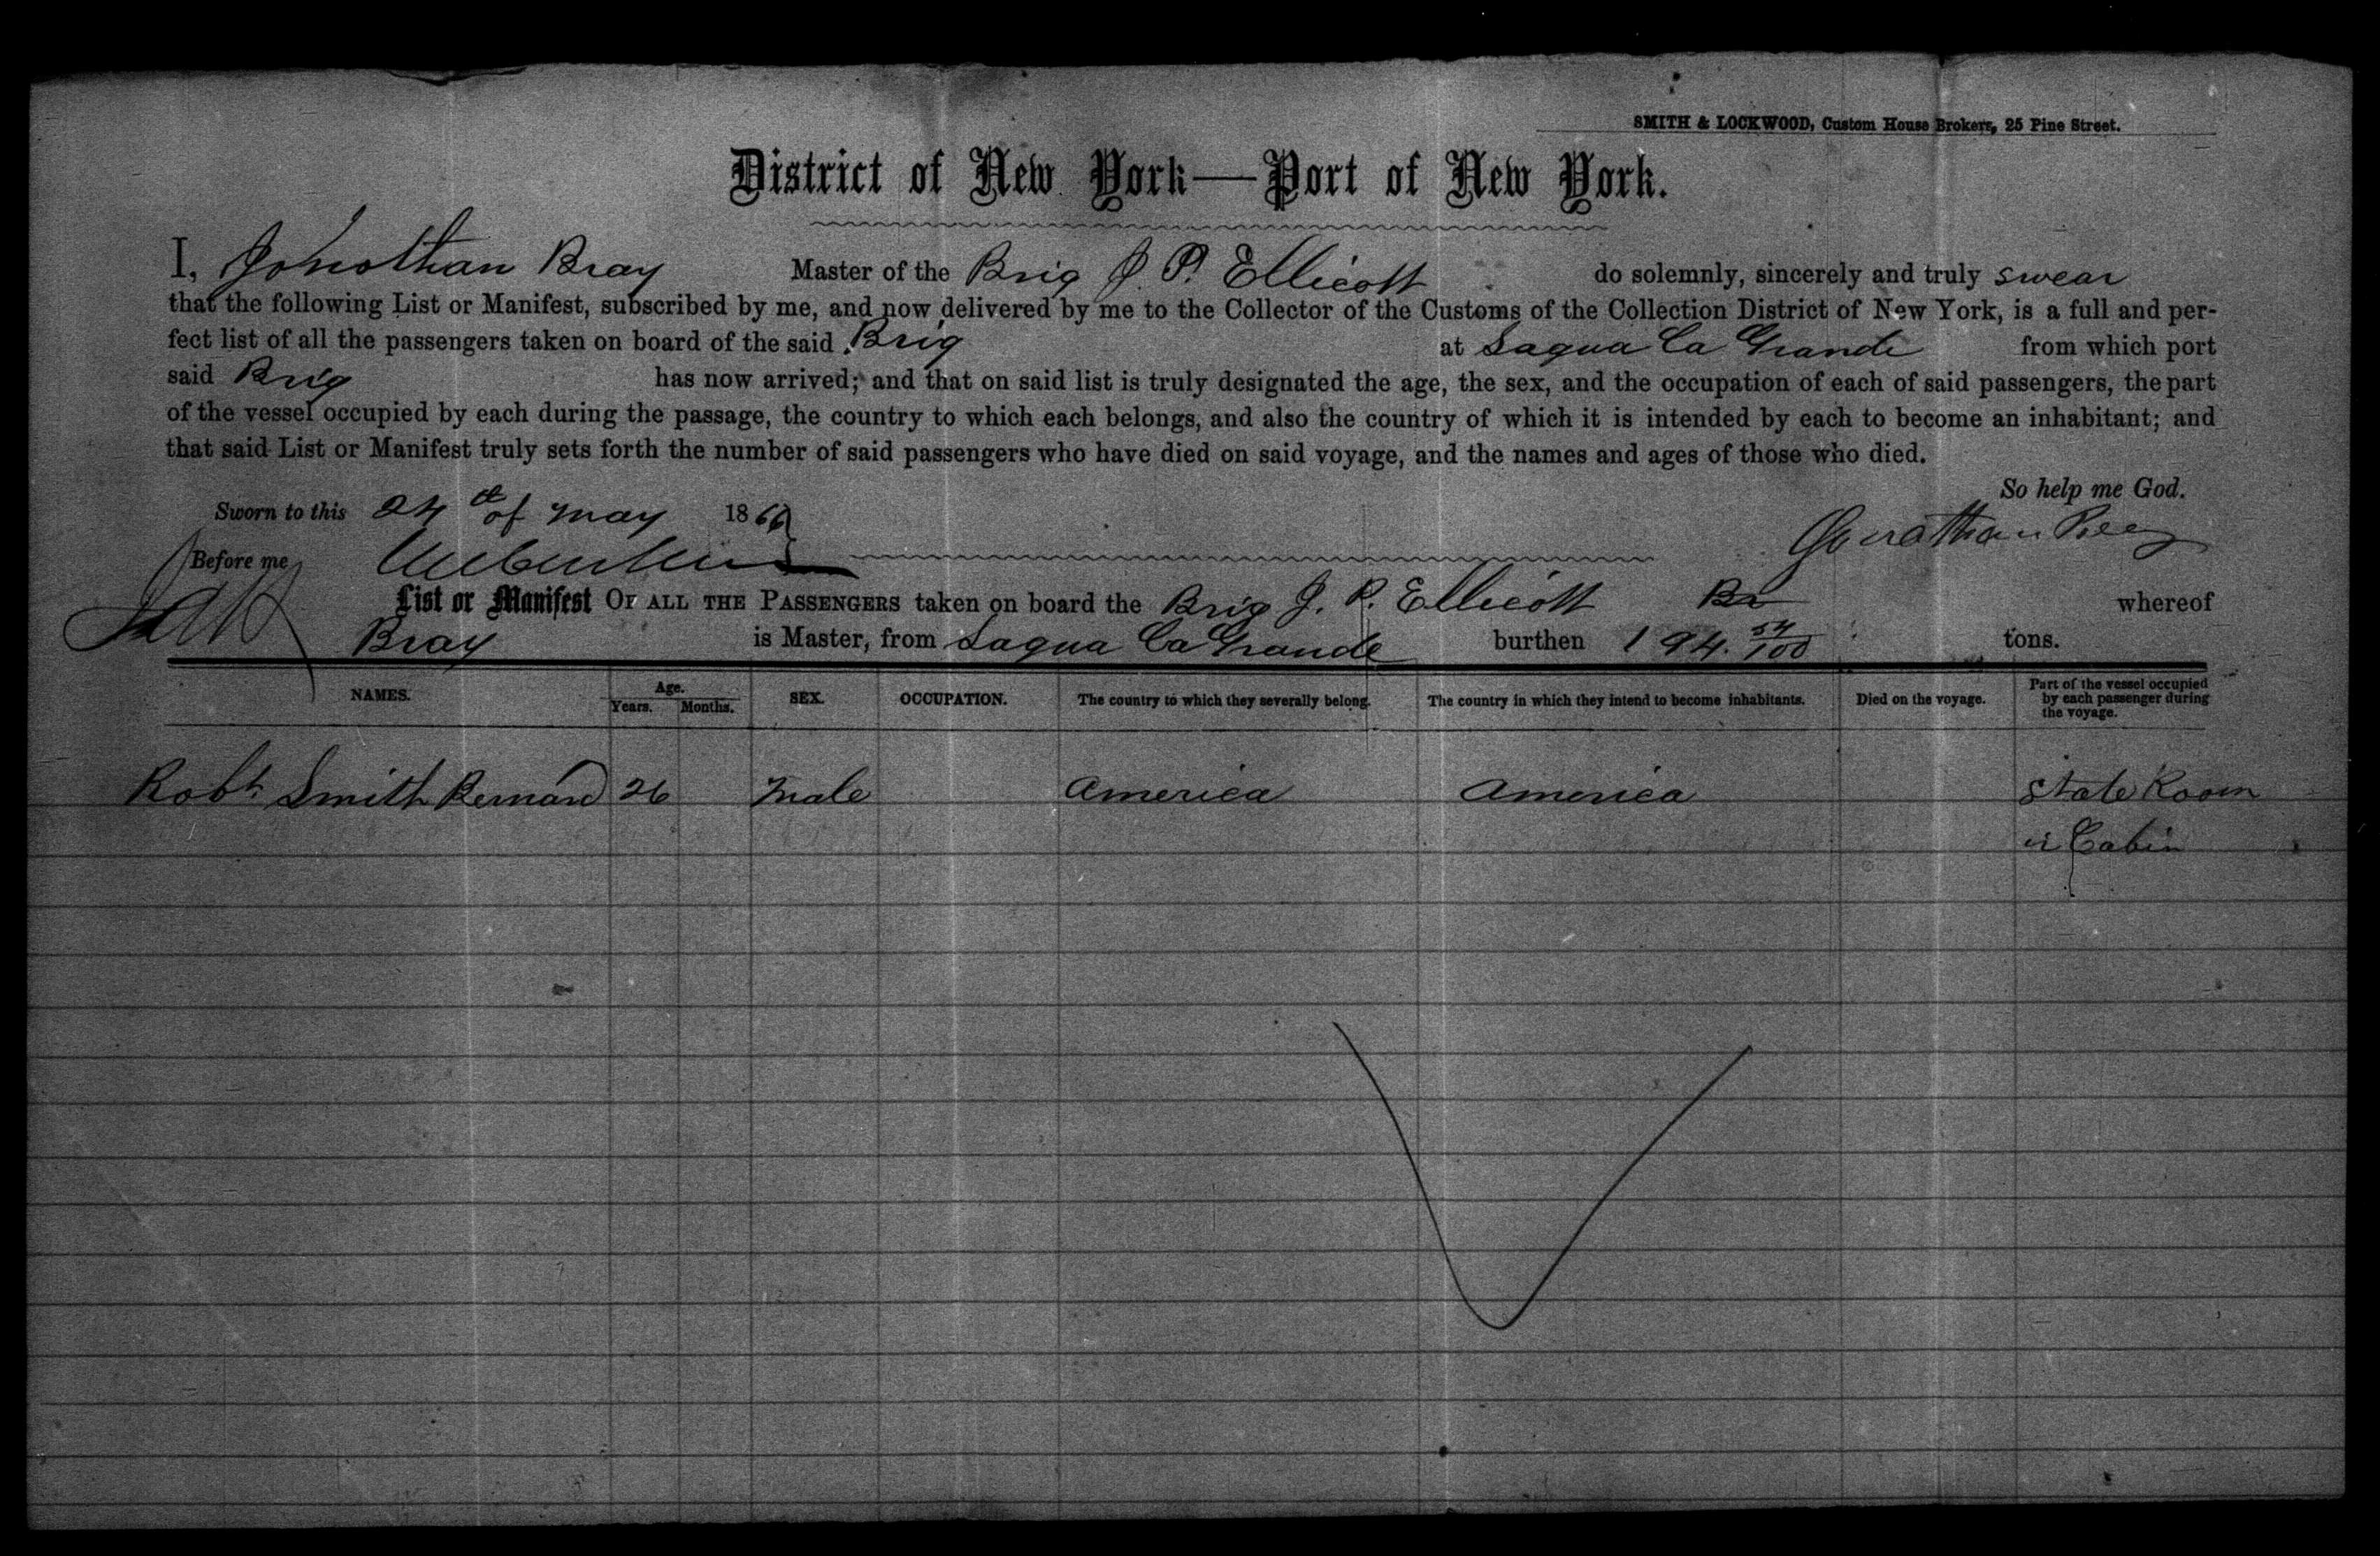 SMITH & LOCKWOOD, Custom House Brokers, 25 Pine Street.
District of New York—Port of New York.
I, Jonothan Bray Master of the Brig J. P. Ellicott do solemnly, sincerely and truly swear
that the following List or Manifest, subscribed by me, and now delivered by me to the Collector of the Customs of the Collection District of New York, is a full and per-
fect list of all the passengers taken on board of the said Brig at Sagua La Grande from which port
said Brig has now arrived; and that on said list is truly designated the age, the sex, and the occupation of each of said passengers, the part
of the vessel occupied by each during the passage, the country to which each belongs, and also the country of which it is intended by each to become an inhabitant; and
that said List or Manifest truly sets forth the number of said passengers who have died on said voyage, and the names and ages of those who died.
So help me God.
Sworn to this 24th of May 1866
Jonathan Bray
Before me
List or Manifest OF ALL THE PASSENGERS taken on board the Brig J. P. Ellicott Br whereof
Bray is Master, from Sagua La Grande burthen 194. 54/100 tons.
NAMES. Age. Years. Months. SEX. OCCUPATION. The country to which they severally belong. The country in which they intend to become inhabitants. Died on the voyage. Part of the vessel occupied by each passenger during the voyage.
Robt. Smith Bernard 26 Male America America State Room
in Cabin